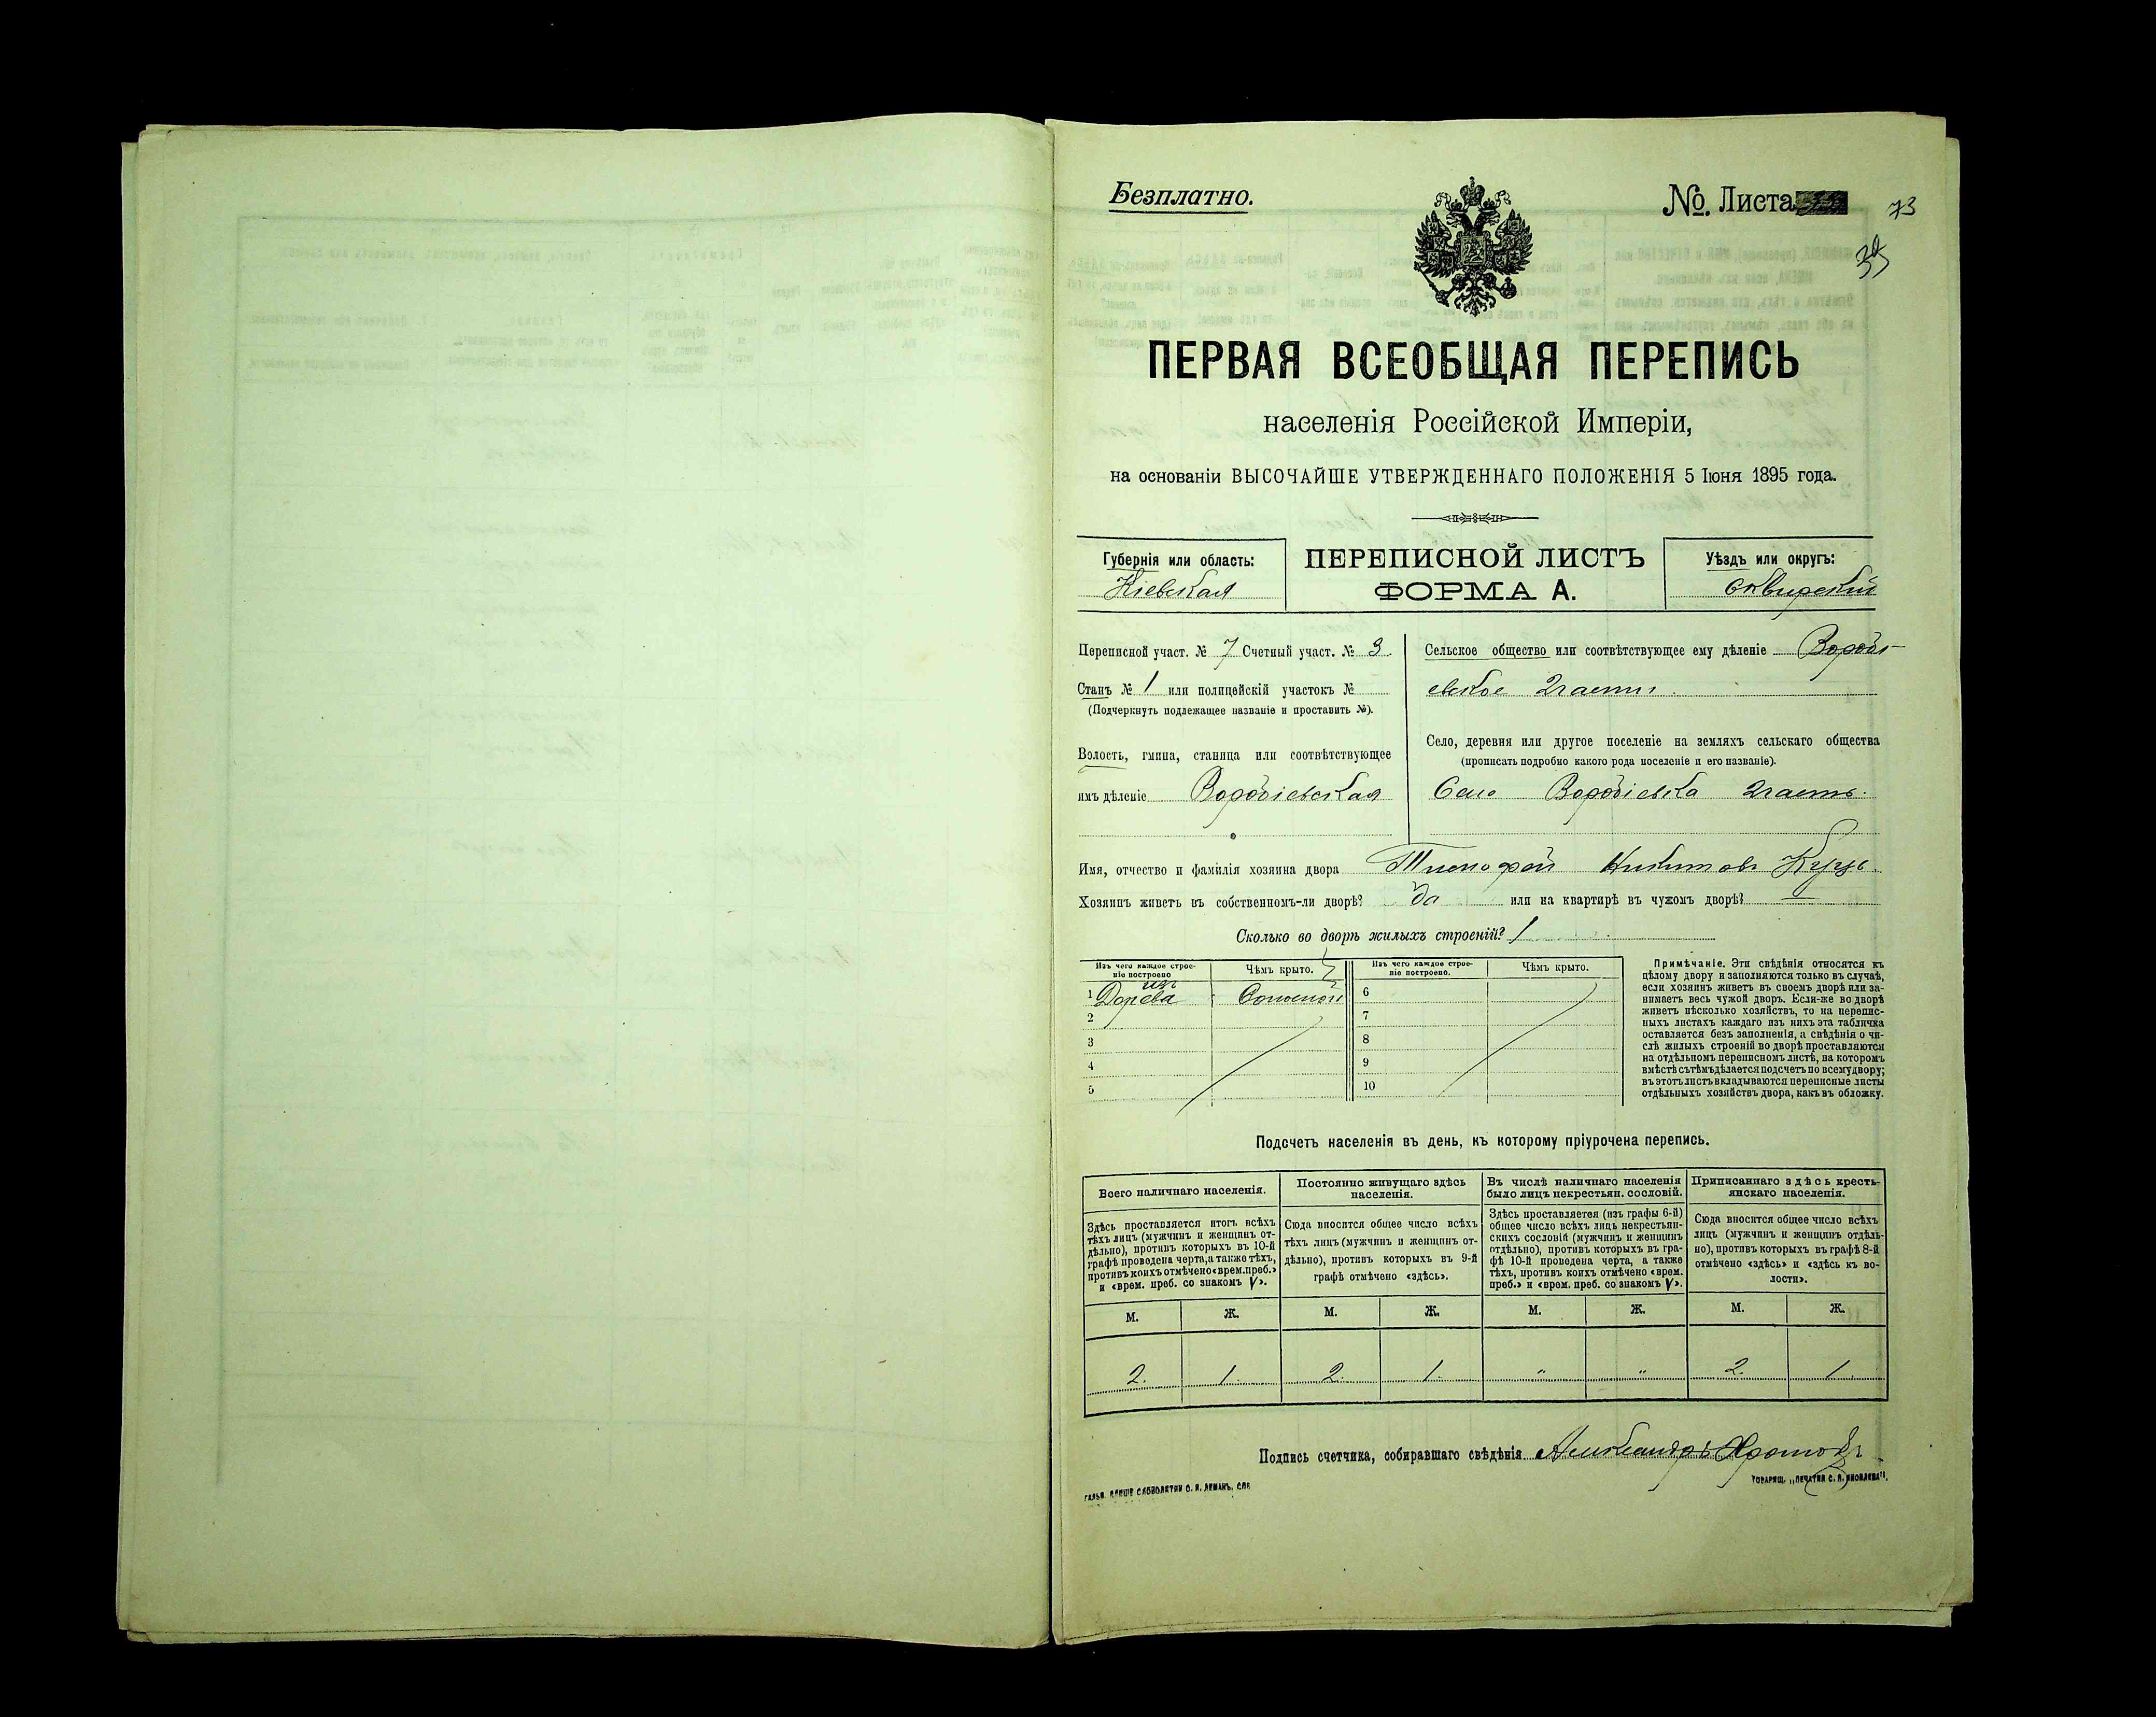 Безплатно.
№ Листа
73
ПЕРВАЯ ВСЕОБЩАЯ ПЕРЕПИСЬ
населенія Россійской Имперіи,
на основаніи ВЫСОЧАЙШЕ УТВЕРЖДЕННАГО ПОЛОЖЕНІЯ 5 Іюня 1895 года.
Губернія или область:
Кіевская
ПЕРЕПИСНОЙ ЛИСТЪ
ФОРМА А.
Уѣздъ или округъ:
Сквирскій
Переписной участ. № 7 Счетный участ. № 3.
Станъ № 1 или полицейскій участокъ №
(Подчеркнуть подлежащее названіе и проставить №).
Волость, гмина, станица или соотвѣтствующее
имъ дѣленіе Воробіевская
Сельское общество или соотвѣтствующее ему дѣленіе Воробі-
евское 2 части.
Село, деревня или другое поселеніе на земляхъ сельскаго общества
(прописать подробно какого рода поселеніе и его названіе).
Село Воробіевка 2 часть.
Имя, отчество и фамилія хозяина двора Тимофей Никитовъ Куцъ.
Хозяинъ живетъ въ собственномъ-ли дворѣ? да или на квартирѣ въ чужомъ дворѣ? —
Сколько во дворѣ жилыхъ строеній? 1
Изъ чего каждое строе-
ніе построено
Чѣмъ крыто.
Изъ чего каждое строе-
ніе построено.
Чѣмъ крыто.
изъ
1 Дерева Соломой
2
3
4
5
6
7
8
9
10
Примѣчаніе. Эти свѣдѣнія относятся къ
цѣлому двору и заполняются только въ случаѣ,
если хозяинъ живетъ въ своемъ дворѣ или за-
нимаетъ весь чужой дворъ. Если-же во дворѣ
живетъ нѣсколько хозяйствъ, то на перепис-
ныхъ листахъ каждаго изъ нихъ эта табличка
оставляется безъ заполненія, а свѣдѣнія о чи-
слѣ жилыхъ строеній во дворѣ проставляются
на отдѣльномъ переписномъ листѣ, на которомъ
вмѣстѣ съ тѣмъ дѣлается подсчетъ по всему двору;
въ этотъ листъ вкладываются переписные листы
отдѣльныхъ хозяйствъ двора, какъ въ обложку.
Подсчетъ населенія въ день, къ которому пріурочена перепись.
Всего наличнаго населенія.
Здѣсь проставляется итогъ всѣхъ
тѣхъ лицъ (мужчинъ и женщинъ от-
дѣльно), противъ которыхъ въ 10-й
графѣ проведена черта, а также тѣхъ,
противъ коихъ отмѣчено «врем. преб.»
и «врем. преб. со знакомъ V».
Постоянно живущаго здѣсь
населенія.
Сюда вносится общее число всѣхъ
тѣхъ лицъ (мужчинъ и женщинъ от-
дѣльно), противъ которыхъ въ 9-й
графѣ отмѣчено «здѣсь».
Въ числѣ наличнаго населенія
было лицъ некрестьян. сословій.
Здѣсь проставляется (изъ графы 6-й)
общее число всѣхъ лицъ некрестьян-
скихъ сословій (мужчинъ и женщинъ
отдѣльно), противъ которыхъ въ гра-
фѣ 10-й проведена черта, а также
тѣхъ, противъ коихъ отмѣчено «врем.
преб.» и «врем. преб. со знакомъ V».
Приписаннаго здѣсь кресть-
янскаго населенія.
Сюда вносится общее число всѣхъ
лицъ (мужчинъ и женщинъ отдѣль-
но), противъ которыхъ въ графѣ 8-й
отмѣчено «здѣсь» и «здѣсь къ во-
лости».
М. Ж. М. Ж. М. Ж. М. Ж.
2. 1. 2. 1. " " 2. 1
Подпись счетчика, собиравшаго свѣдѣнія Александръ
ТОВАРИЩ. „ПЕЧАТНЯ С. П. ЯКОВЛЕВА".